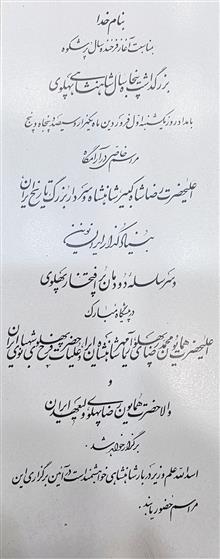 بنام خدا
بمناسبت آغاز فرخنده سال پرشکوه
بزرگداشت پنجاه سال شاهنشاهی پهلوی
بامداد روز یکشنبه اول فروردین ماه یکهزار و سیصد و پنجاه و پنج
مراسم خاصی در آرامگاه
اعلیحضرت رضا شاه کبیر شاهنشاه و سردار بزرگ تاریخ ایران
بنیادگذار ایران نوین
و سر سلسله دودمان پر افتخار پهلوی
در پیشگاه مبارک
اعلیحضرت همایون محمد رضا پهلوی آریامهر شاهنشاه ایران و علیاحضرت فرح پهلوی شهبانوی ایران
و
والاحضرت همایون رضا پهلوی ولیعهد ایران
برگزار خواهد شد.
اسدالله علم وزیر دربار شاهنشاهی خواهشمند است در آئین برگزاری این
مراسم حضور یابند.